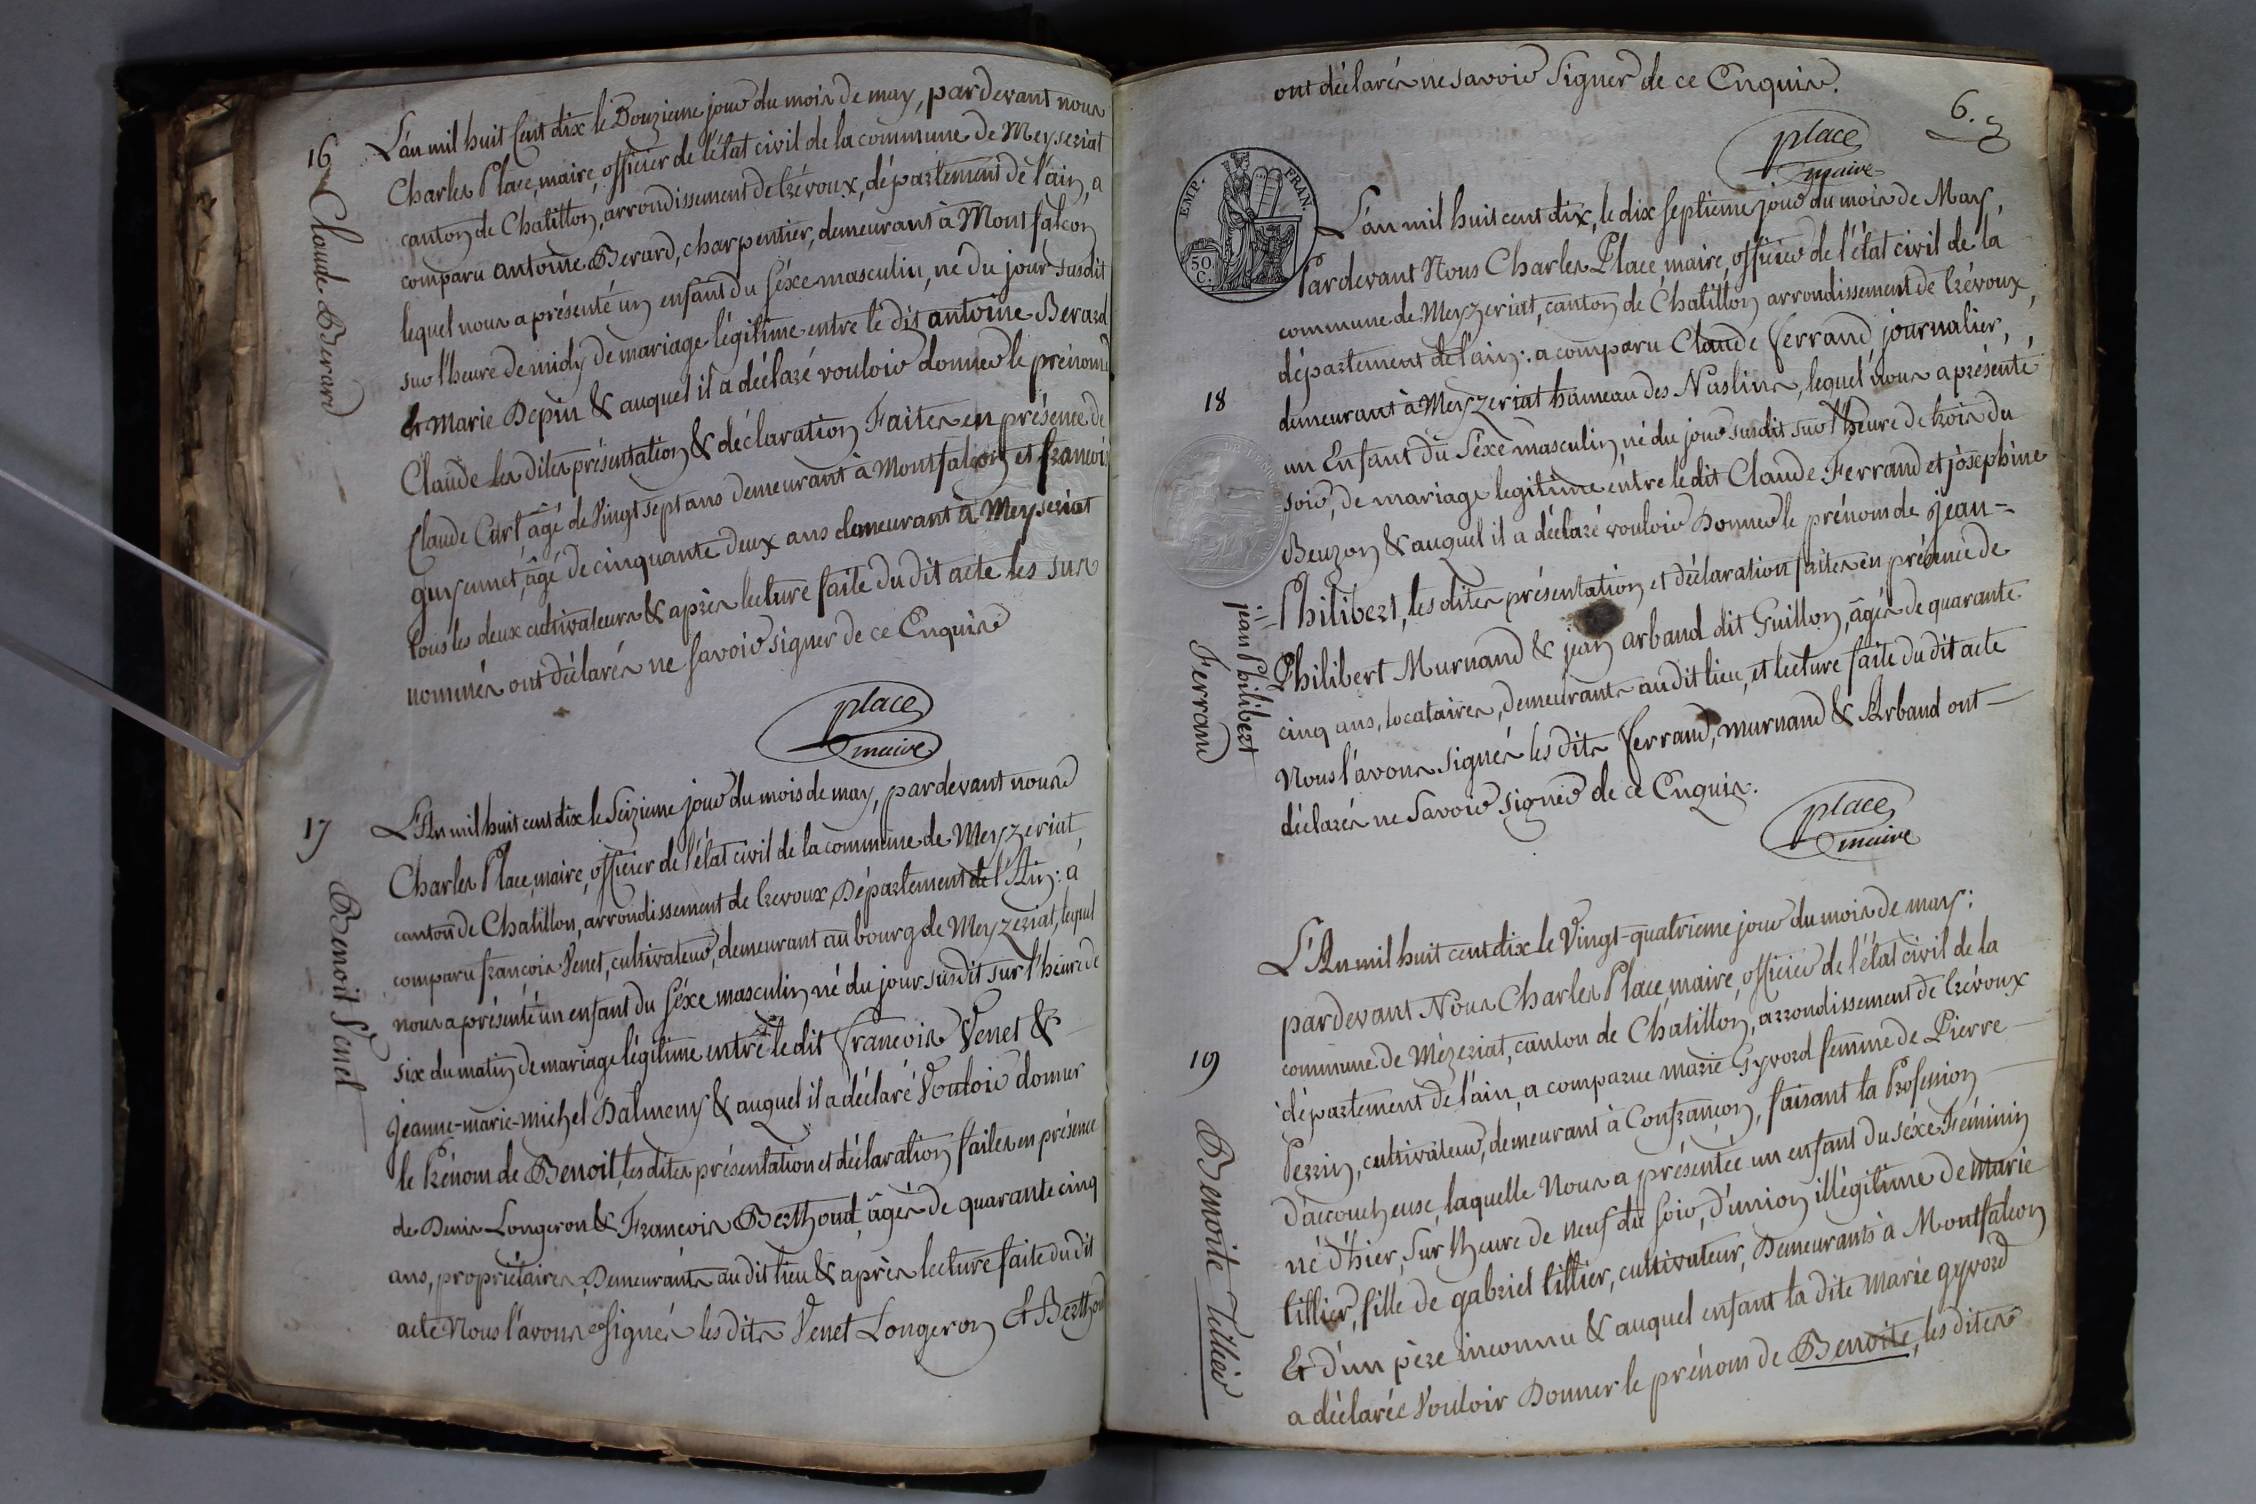 16
Claude Berard
L'an mil huit cent dix le Douzieme jour du mois de may, pardevant nous
Charles Place, maire, officier de l'état civil de la commune de Meyseriat
canton de Chatillon, arrondissement de trévoux, département de l'ain, a
comparu antoine Berard, charpentier, demeurant à Montfalcon
lequel nous a présenté un enfant du séxe masculin, né du jour susdit
sur l'heure de midy de mariage légitime entre le dit antoine Berard
& Marie Depin & auquel il a déclaré vouloir donner le prénom
Claude Les dites présentation & déclaration Faites en présence de
Claude Curt âgé de vingt sept ans demeurant à Montfalcon et francois
âgé de cinquante deux ans demeurant à Meyseriat
tous les deux cultivateurs & après lecture faite du dit acte les sus
nommés ont déclarés ne savoir signer de ce Enquis
place
maire
17
Benoit Venet
L'An mil huit cent dix le Seizieme jour du mois de may, pardevant nous
Charles Place, maire, officier de l'état civil de la commune de Meyzeriat
canton de Chatillon, arrondissement de trevoux Département de l'Ain: a
comparu françois Venet, cultivateur, demeurant au bourg de Meyzeriat, lequel
nous a présenté un enfant du séxe masculin né du jour susdit sur l'heure de
six du matin de mariage légitime entre le dit francois Venet &
jeanne-marie-michel Dalmeny & auquel il a déclaré Vouloir donner
le Prénom de Benoit, les dites présentation et déclaration faites en présence
de Denis Longeron & Francois Berthoud, âgés de quarante cinq
ans, propriétaires, Demeurants au dit lieu & après lecture faite du dit
acte Nous l'avons signés les dits Venet Longeron & Berthoud
ont déclarés ne savoir signer de ce Enquis.
6.
place
maire
EMP. FRAN.
50 C.
18
jean Philibert
Ferrand
L'an mil huit cent dix, le dix septieme jour du mois de May,
Pardevant Nous Charles Place, maire, officier de l'état civil de la
commune de Meyzeriat, canton de Chatillon arrondissement de trévoux,
département de l'ain: a comparu Claude ferrand journalier,
demeurant à Meyzeriat hameau des Naslins, lequel nous a présenté
un Enfant du Séxe masculin, né du jour susdit sur l'heure de trois du
soir, de mariage legitime entre le dit Claude Ferrand et josephine
Beuzon & auquel il a déclaré vouloir Donner le prénom de jean-
Philibert, les dites présentation et déclaration faites en présence de
Philibert Murnand & jean arband dit Guillon, âgés de quarante
cinq ans, locataires, demeurants au dit lieu, et lecture faite du dit acte
Nous l'avons signés les dits ferrand, murnand & Arband ont
déclarés ne Savoir signer de ce Enquis.
place
maire
19
Benoite Tillier
L'An mil huit cent dix le Vingt-quatrieme jour du mois de may:
pardevant Nous Charles Place, maire, officier de l'état civil de la
commune de Mézeriat, canton de Chatillon, arrondissement de trévoux
département de l'ain, a comparue marie Gyvord femme de Pierre
Perrin, cultivateur, demeurant à Confrançon, faisant la Profession
d'accoucheuse, laquelle Nous a présentée un enfant du séxe Féminin
né d'hier, sur l'heure de neuf du soir, d'union illégitime de marie
tillier, fille de gabriel tillier, cultivateur, Demeurants à Montfalcon
& d'un père inconnu & auquel enfant la dite Marie gyvord
a déclarée Vouloir Donner le prénom de Benoite, les dites